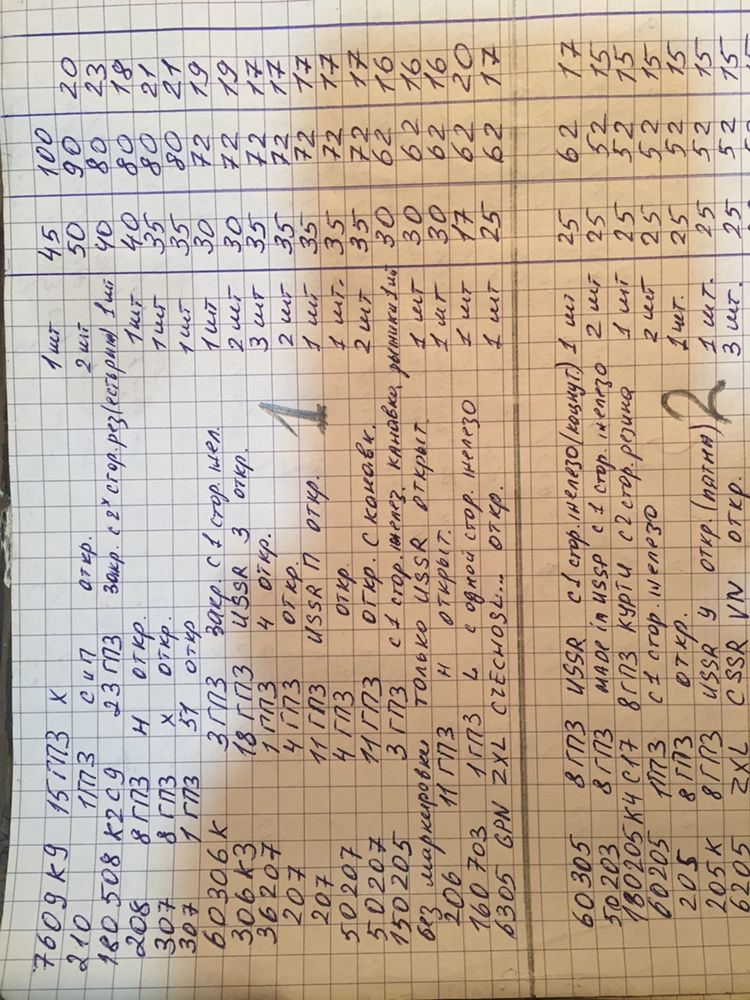 7609 К9 15 ГПЗ X 1 шт 45 100
210 1ГПЗ С и П откр. 2 шт 50 90 20
180 508 К2С9 23 ГПЗ закр. с 2х стор. рез (есть рыт) 1 шт 40 80 23
208 8 ГПЗ Ч откр. 1 шт 40 80 18
307 8 ГПЗ X откр. 1 шт 35 80 21
307 1 ГПЗ 51 откр 1 шт 35 80 21
60306 К 3 ГПЗ закр. с 1 стор. жел. 1 шт 30 72 19
306 К3 18 ГПЗ USSR 3 откр. 2 шт 30 72 19
36207 1 ГПЗ 4 откр. 3 шт 35 72 17
207 4 ГПЗ откр. 2 шт 35 72 17
207 11 ГПЗ USSR П откр. 1 шт 35 72 17
50207 4 ГПЗ откр. 1 шт. 35 72 17
50207 11 ГПЗ откр. с канавк. 2 шт 35 72 17
150205 3 ГПЗ с 1 стор. желез. канавка 1 шт 30 62 16
без маркировки только USSR открыт 1 шт 30 62 16
206 11 ГПЗ Ч открыт. 1 шт 30 62 16
160 703 1 ГПЗ L с одной стор. железо 1 шт 17 62 20
6305 GPN ZXL CZECHOSL... откр. 1 шт 25 62 17
1
60305 8 ГПЗ USSR с 1 стор. железо 1 шт 25 62 17
50203 8 ГПЗ MADE in USSR с 1 стор. железо 2 шт 25 52 15
180205 К4 С17 8 ГПЗ КУРТИ с 2 стор. резина 1 шт 25 52 15
60205 1ГПЗ с 1 стор. железо 2 шт 25 52 15
205 8 ГПЗ откр. 1 шт. 25 52 15
205 К 8 ГПЗ USSR У откр 1 шт. 25 52 15
6205 ZXL CSSR VN откр. 3 шт. 25 52 15
2